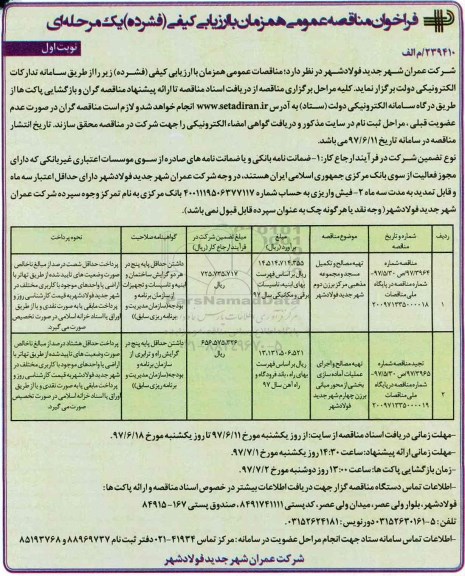 فراخوان مناقصه عمومی همزمان با ارزیابی کیفی (فشرده) یک مرحله‌ای
نوبت اول
۲۳۹۴۱۰/م الف
شرکت عمران شهر جدید فولادشهر در نظر دارد: مناقصات عمومی همزمان با ارزیابی کیفی (فشرده) زیر را از طریق سامانه تدارکات
الکترونیکی دولت برگزار نماید. کلیه مراحل برگزاری مناقصه از دریافت اسناد مناقصه تا ارائه پیشنهاد مناقصه گران و بازگشایی پاکت ها از
طریق درگاه سامانه الکترونیکی دولت (ستاد) به آدرس www.setadiran.ir انجام خواهد شد و لازم است مناقصه گران در صورت عدم
عضویت قبلی، مراحل ثبت نام در سایت مذکور و دریافت گواهی امضاء الکترونیکی را جهت شرکت در مناقصه محقق سازند. تاریخ انتشار
مناقصه در سامانه تاریخ ۹۷/۶/۱۱ می باشد.
نوع تضمین شرکت در فرآیند ارجاع کار: ۱- ضمانت نامه بانکی و یا ضمانت نامه های صادره از سوی موسسات اعتباری غیربانکی که دارای
مجوز فعالیت از سوی بانک مرکزی جمهوری اسلامی ایران هستند، در وجه شرکت عمران شهر جدید فولادشهر دارای حداقل اعتبار سه ماه
و قابل تمدید به مدت سه ماه ۲- فیش واریزی به حساب شماره ۴۰۰۱۱۱۹۵۰۶۳۷۷۱۱۷ بانک مرکزی به نام تمرکز وجوه سپرده شرکت عمران
شهر جدید فولادشهر (وجه نقد یا هرگونه چک به عنوان سپرده قابل قبول نمی باشد).
ردیف | شماره و تاریخ مناقصه | موضوع مناقصه | مبلغ برآورد (ریال) | مبلغ تضمین شرکت در فرآیند ارجاع کار (ریال) | گواهینامه صلاحیت | نحوه پرداخت
۱ | مناقصه شماره ۹۷/۳۹۶۴/ص-۹۷/۵/۳۰ شماره مناقصه در پایگاه ملی مناقصات ۲۰۰۹۷۱۳۳۵۰۰۰۰۱۸ | تهیه مصالح و تکمیل مسجد و مجموعه مذهبی مرکز برزن دوم شهر جدید فولادشهر | ۱۴,۵۱۴,۷۱۴,۳۵۵ ریال بر اساس فهرست بهای ابنیه، تاسیسات برقی و مکانیکی سال ۹۷ | ۷۲۵,۷۳۵,۷۱۷ ریال | داشتن حداقل پایه پنج در هر دو گرایش ساختمان و ابنیه و تاسیسات و تجهیزات از سازمان برنامه و بودجه (سازمان مدیریت و برنامه ریزی سابق)) | پرداخت حداقل شصت درصد از مبالغ ناخالص صورت وضعیت های تایید شده از طریق تهاتر با اراضی یا واحدهای موجود با کاربری مختلف در شهر جدید فولادشهر به قیمت کارشناسی روز و پرداخت مابقی یا به صورت نقدی و یا از طریق اوراق یا اسناد خزانه اسلامی در صورت تخصیص صورت می گیرد.
۲ | تجدید مناقصه شماره ۹۷/۳۹۶۵/ص-۹۷/۵/۳۰ شماره مناقصه در پایگاه ملی مناقصات ۲۰۰۹۷۱۳۳۵۰۰۰۰۱۹ | تهیه مصالح و اجرای عملیات آماده سازی بخشی از محور میانی برزن چهارم شهر جدید فولادشهر | ۱۳,۱۳۱,۵۰۶,۵۲۱ ریال بر اساس فهرست بهای راه، باند فرودگاه و راه آهن سال ۹۷ | ۶۵۶,۵۷۵,۳۲۶ ریال | داشتن حداقل پایه پنج در گرایش راه و ترابری از سازمان برنامه و بودجه (سازمان مدیریت و برنامه ریزی سابق)) | پرداخت حداقل هشتاد درصد از مبالغ ناخالص صورت وضعیت های تایید شده از طریق تهاتر با اراضی یا واحدهای موجود با کاربری مختلف در شهر جدید فولادشهر به قیمت کارشناسی روز و پرداخت مابقی یا به صورت نقدی و یا از طریق اوراق یا اسناد خزانه اسلامی در صورت تخصیص صورت می گیرد.
-مهلت زمانی دریافت اسناد مناقصه از سایت: از روز یکشنبه مورخ ۹۷/۶/۱۱ تا روز یکشنبه مورخ ۹۷/۶/۱۸.
-مهلت زمانی ارائه پیشنهاد: ساعت ۱۴:۳۰ روز یکشنبه مورخ ۹۷/۷/۱
-زمان بازگشایی پاکت ها: ساعت ۱۳:۰۰ روز دوشنبه مورخ ۹۷/۷/۲
-اطلاعات تماس دستگاه مناقصه گزار جهت دریافت اطلاعات بیشتر در خصوص اسناد مناقصه و ارائه پاکت ها:
فولادشهر، بلوار ولی عصر، میدان ولی عصر، کدپستی ۸۴۹۱۷۴۱۱۱۱، صندوق پستی ۱۶۷-۸۴۹۱۵
تلفن: ۵-۰۳۱۵۲۶۳۰۱۶۱ دورنویس: ۰۳۱۵۲۶۲۴۱۸۱
-اطلاعات تماس سامانه ستاد جهت انجام مراحل عضویت در سامانه: مرکز تماس ۴۱۹۳۴-۰۲۱ دفتر ثبت نام ۸۸۹۶۹۷۳۷ و ۸۵۱۹۳۷۶۸
شرکت عمران شهر جدید فولادشهر